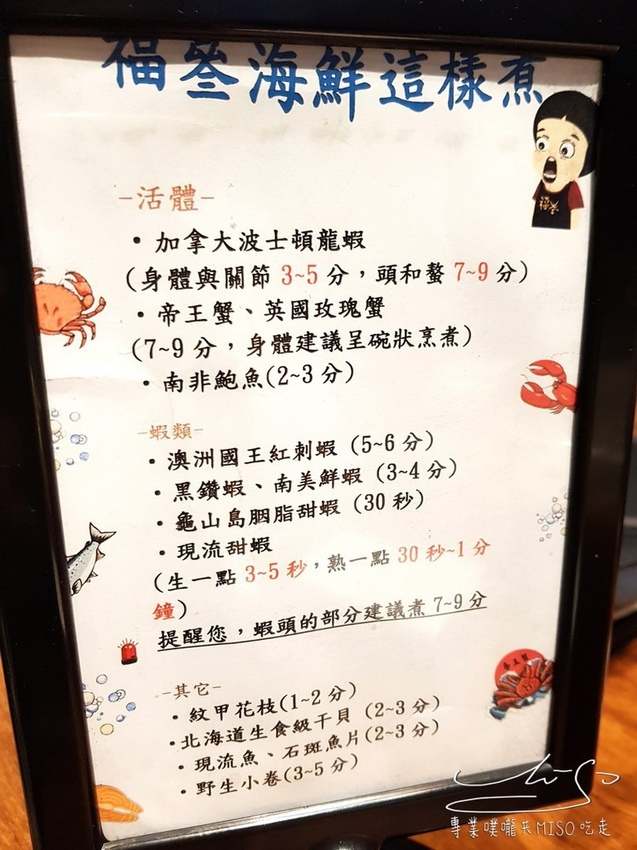 福叁海鮮這樣煮
-活體-
・加拿大波士頓龍蝦
(身體與關節 3~5 分，頭和螯 7~9 分)
・帝王蟹、英國玫瑰蟹
(7~9 分，身體建議呈碗狀烹煮)
・南非鮑魚(2~3 分)
-蝦類-
・澳洲國王紅刺蝦 (5~6 分)
・黑鑽蝦、南美鮮蝦 (3~4 分)
・龜山島胭脂甜蝦 (30 秒)
・現流甜蝦
(生一點 3~5 秒，熟一點 30 秒~1 分
鐘)
提醒您，蝦頭的部分建議煮 7~9 分
-其它-
・紋甲花枝(1~2 分)
・北海道生食級干貝 (2~3 分)
・現流魚、石斑魚片(2~3 分)
・野生小卷(3~5 分)
專業噗嚨共MISO吃走